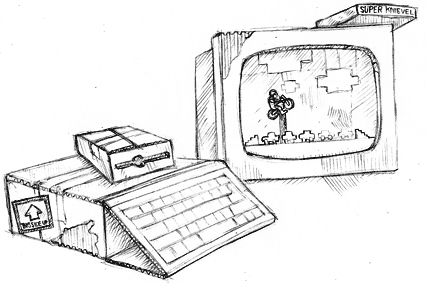 SUPER KNIEVEL
THIS SIDE UP